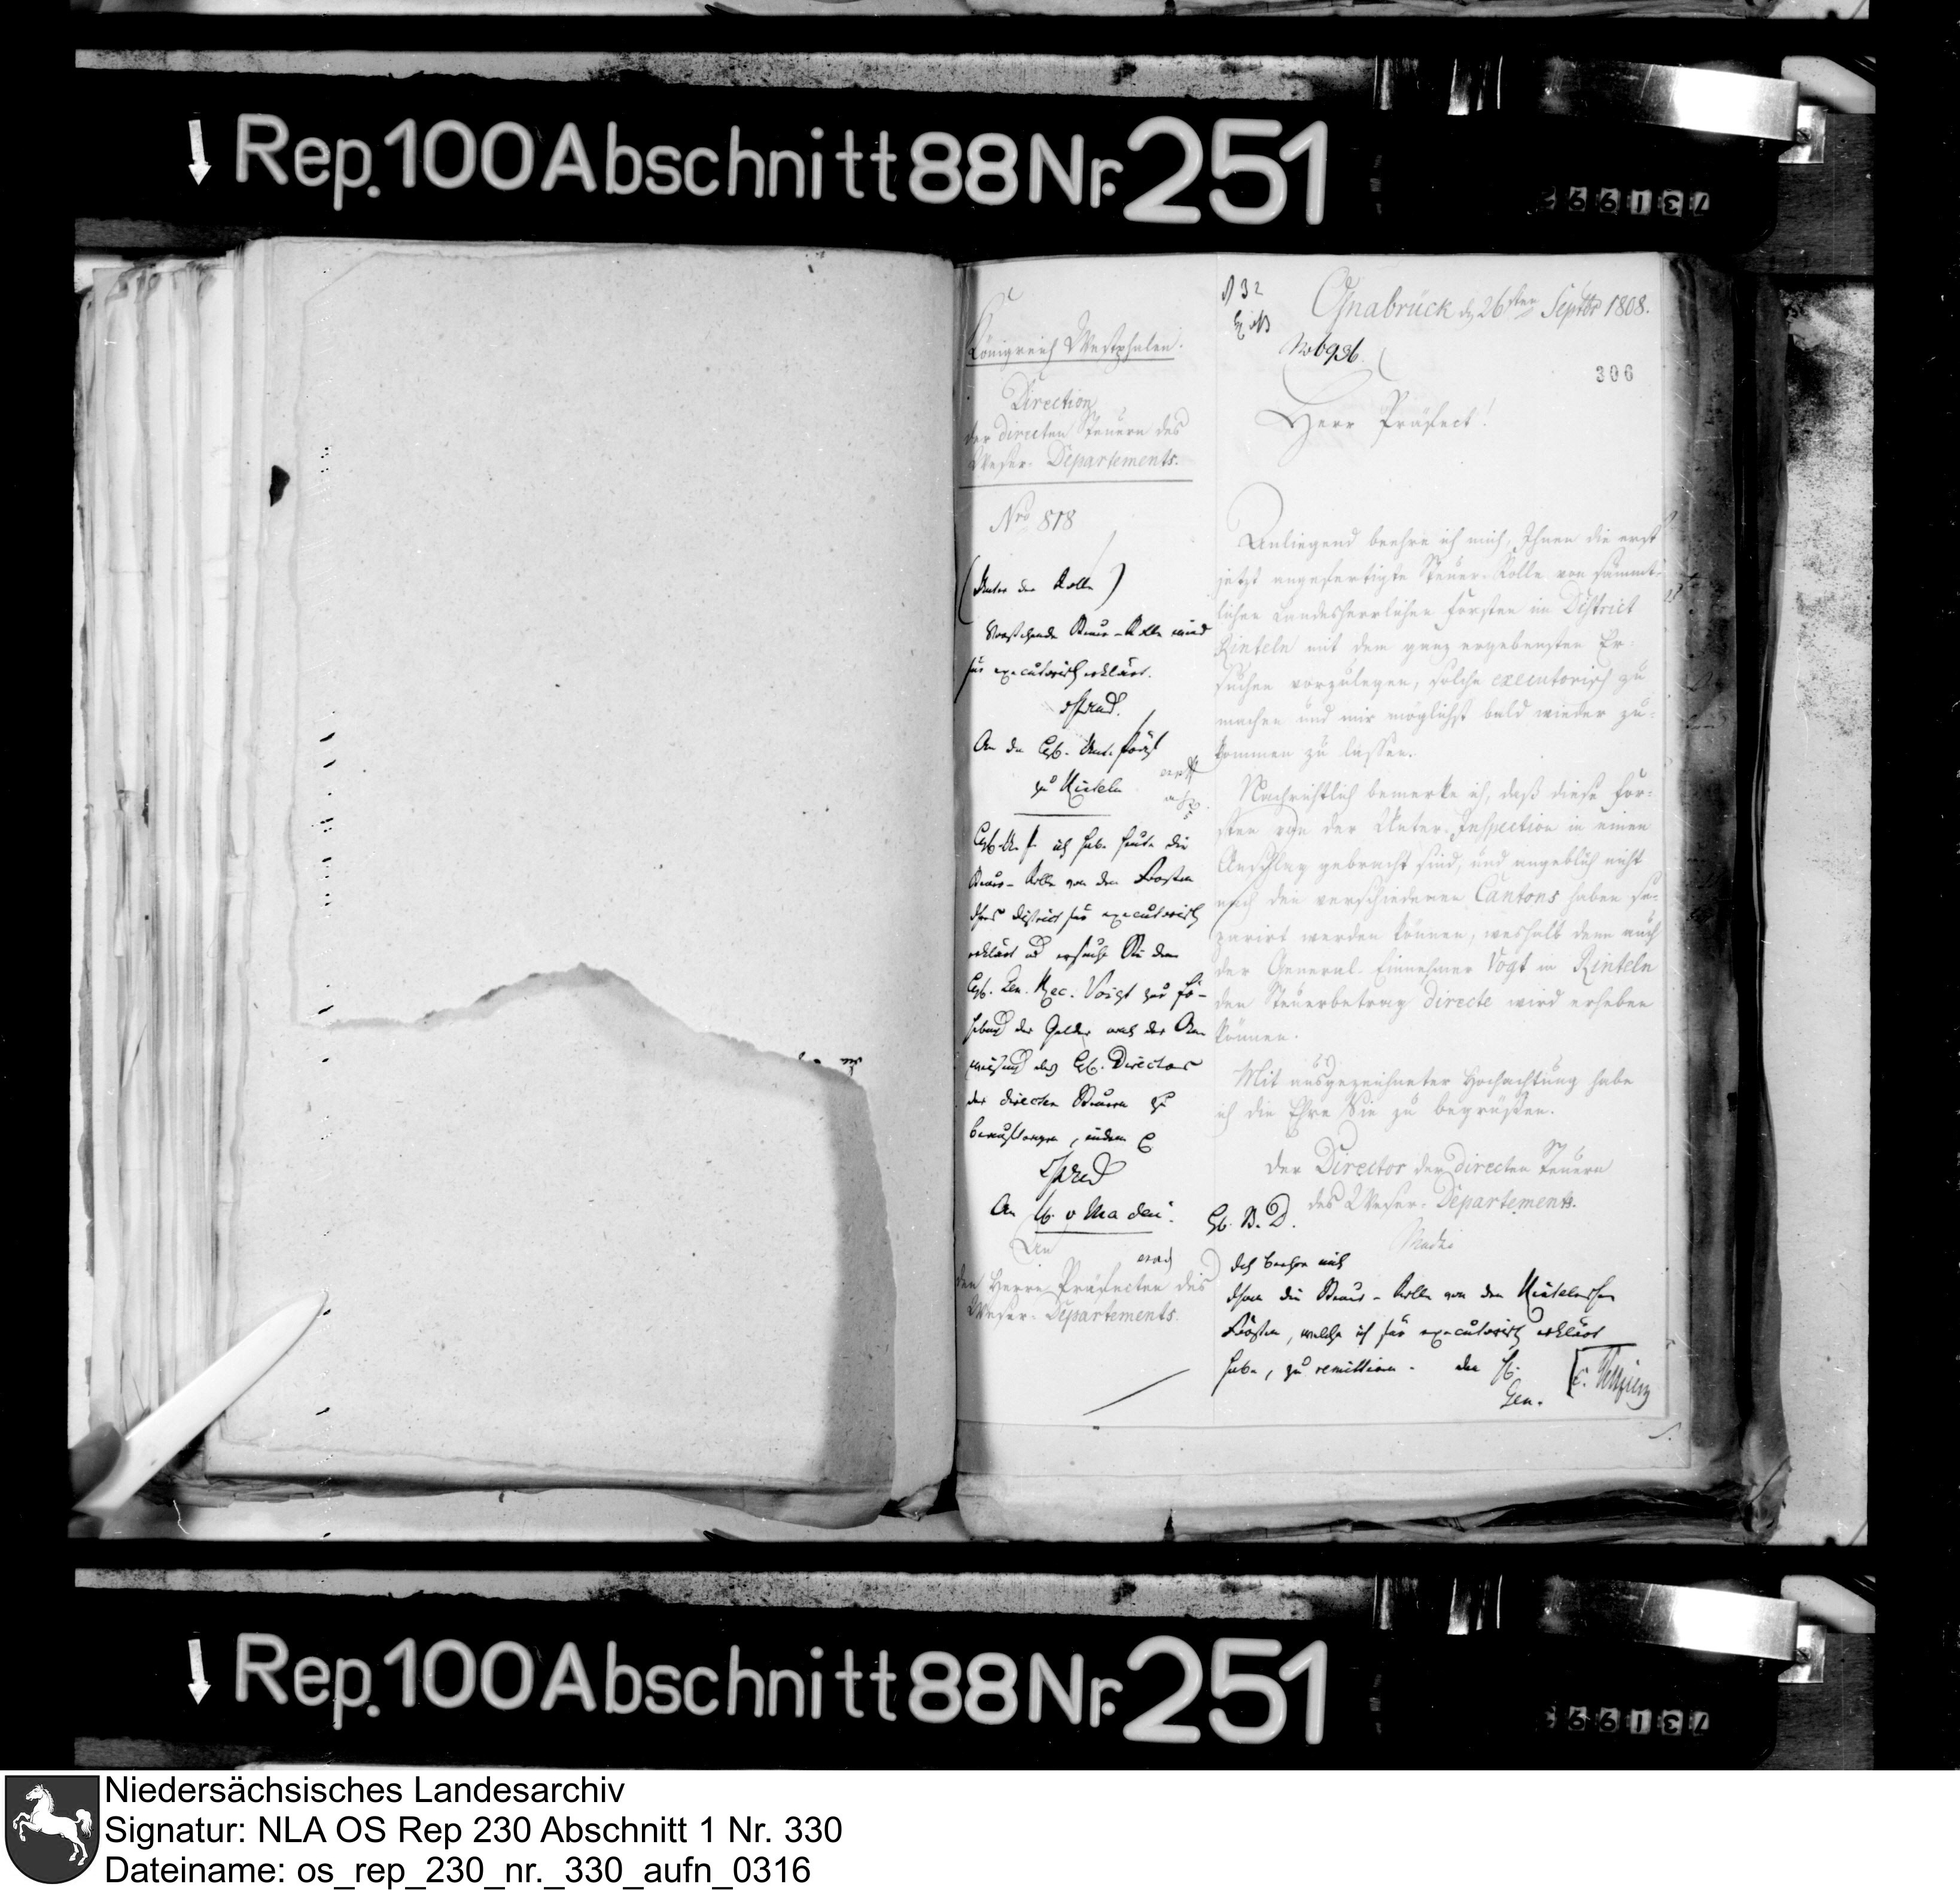 Rep. 100 Abschnitt 88 Nr. 251
731992
Königreich Westphalen.
Direction
der directen Steuern des
Weser-Departements.
Nro 818
(Unter der Rolle)
Vorstehende Steuer-Rolle wird
für executorisch erklärt.
An den Unt. Präf.
zu Rinteln
ich habe heute die
Steuer-Rolle von den Forsten
Ihres District für executorisch
erklärt und ersuche Sie dem
Gen. Rec. Voigt zur
hebung der Gelder nach der An
weisung des Directors
der directen Steuern zu
An
An
den Herrn Präfecten des
Weser-Departements.
Osnabrück d. 26sten Septbr 1808.
No 6936
306
Herr Präfect!
Anliegend beehre ich mich, Ihnen die erst
jetzt angefertigte Steuer-Rolle von sämmt-
lichen Landesherrlichen Forsten im District
Rinteln mit dem ganz ergebensten Er-
suchen vorzulegen, solche executorisch zu
machen und mir möglichst bald wieder zu-
kommen zu lassen.
Nachrichtlich bemerke ich, daß diese For-
sten von der Unter-Inspection in einen
Anschlag gebracht sind, und angeblich nicht
nach den verschiedenen Cantons haben se-
parirt werden können, weshalb denn auch
der General-Einnehmer Vogt in Rinteln
den Steuerbetrag directe wird erheben
können.
Mit ausgezeichneter Hochachtung habe
ich die Ehre Sie zu begrüßen.
Der Director der directen Steuern
des Weser-Departements.
Ich beehre mich
Ihnen die Steuer-Rolle von den Rintelnschen
Forsten, welche ich für executorisch erklärt
habe, zu remittiren.
Gen.
Rep. 100 Abschnitt 88 Nr. 251
731992
Niedersächsisches Landesarchiv
Signatur: NLA OS Rep 230 Abschnitt 1 Nr. 330
Dateiname: os_rep_230_nr._330_aufn_0316